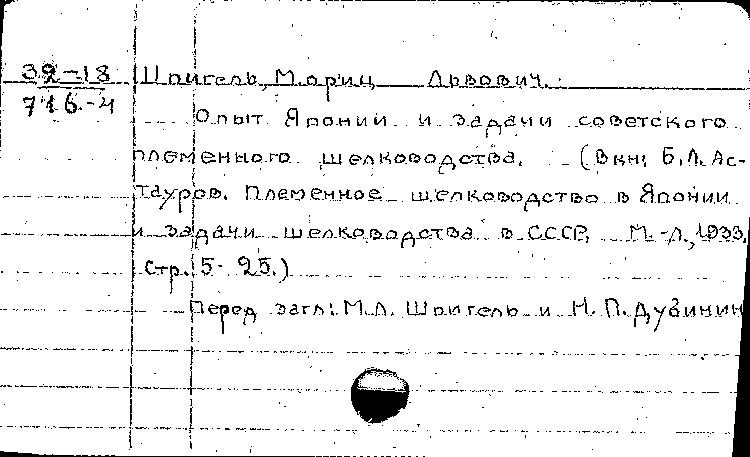 39-18 Шпигель, Мориц Львович.
716-4
Опыт Японии и задачи советского
племенного шелководства. (В кн: Б.Л. Ас-
тауров. Племенное шелководство в Японии
и задачи шелководства в СССР, М.-Л., 1933.
стр. 5-25.)
Перед загл: М.Л. Шпигель и Н.П. Дубинин